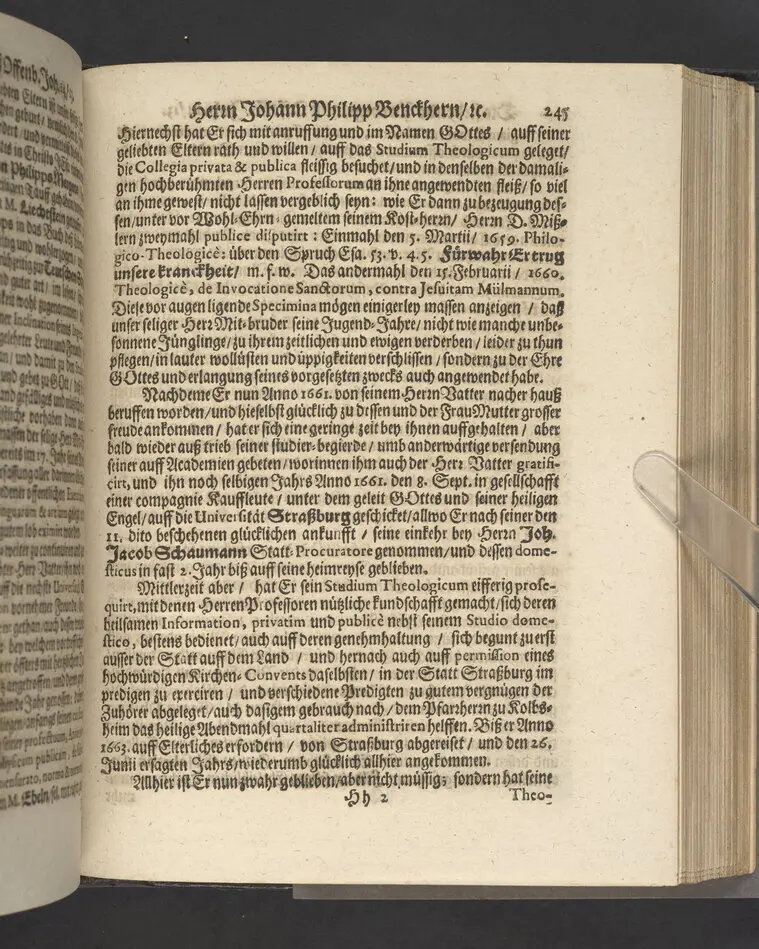 Herrn Johann Philipp Benckhern/ꝛc. 245
Hiernechst hat Er sich mit anruffung und im Namen GOttes / auff seiner
geliebten Eltern rath und willen / auff das Studium Theologicum geleget/
die Collegia privata & publica fleissig besuchet/und in denselben der damali-
gen hochberühmten Herren Professorum an ihne angewendten fleiß/ so viel
an ihme gewest/ nicht lassen vergeblich seyn: wie Er dann zu bezeugung des-
sen/unter vor Wohl-Ehrn-gemeltem seinem Kost-herrn/ Herrn D. Miß-
lern zweymahl publicè disputirt : Einmahl den 5. Martii/ 1659. Philo-
gico-Theologicè: über den Spruch Esa. 53. v. 4. 5. Fürwahr Er trug
unsere kranckheit/ m. f. w. Das andermahl den 15. Februarii / 1660.
Theologicè, de Invocatione Sanctorum, contra Jesuitam Mülmannum.
Diese vor augen ligende Specimina mögen einigerley massen anzeigen / daß
unser seliger Herꝛ Mit-bruder seine Jugend-Jahre/ nicht wie manche unbe-
sonnene Jünglinge/ zu ihrem zeitlichen und ewigen verderben / leider zu thun
pflegen/in lauter wollüsten und üppigkeiten verschlissen / sondern zu der Ehre
GOttes und erlangung seines vorgesetzten zwecks auch angewendet habe.
Nachdeme Er nun Anno 1661. von seinem Herrn Vatter nacher hauß
beruffen worden/und hieselbst glücklich zu dessen und der Frau Mutter grosser
freude ankommen/ hat er sich eine geringe zeit bey ihnen auffgehalten / aber
bald wieder auß trieb seiner studier-begierde / umb anderwärtige versendung
seiner auff Academien gebeten/worinnen ihm auch der Herꝛ Vatter gratifi-
cirt, und ihn noch selbigen Jahrs Anno 1661. den 8. Sept. in gesellschafft
einer compagnie Kauffleute / unter dem geleit GOttes und seiner heiligen
Engel/auff die Universität Straßburg geschicket/allwo Er nach seiner den
11. dito beschehenen glücklichen ankunfft / seine einkehr bey Herrn Joh.
Jacob Schaumann Statt-Procuratore genommen/und dessen dome-
sticus in fast 2. Jahr biß auff seine heimreyse geblieben.
Mittlerzeit aber / hat Er sein Studium Theologicum eifferig prose-
quirt, mit denen Herren Professoren nützliche kundschafft gemacht/sich deren
heilsamen Information, privatim und publicè nebst seinem Studio dome-
stico, bestens bedienet/auch auff deren genehmhaltung / sich begunt zu erst
ausser der Statt auff dem Land / und hernach auch auff permission eines
hochwürdigen Kirchen-Convents daselbsten/ in der Statt Straßburg im
predigen zu exerciren / und verschiedene Predigten zu gutem vergnügen der
Zuhörer abgeleget/auch dasigem gebrauch nach / dem Pfarrherrn zu Kolbs-
heim das heilige Abendmahl quartaliter administriren helffen. Biß er Anno
1663. auff Elterliches erfordern / von Straßburg abgereiset / und den 26.
Junii ersagten Jahrs/wiederumb glücklich allhier angekommen.
Allhier ist Er nun zwahr geblieben/aber nicht müssig; sondern hat seine
Hh 2 Theo-